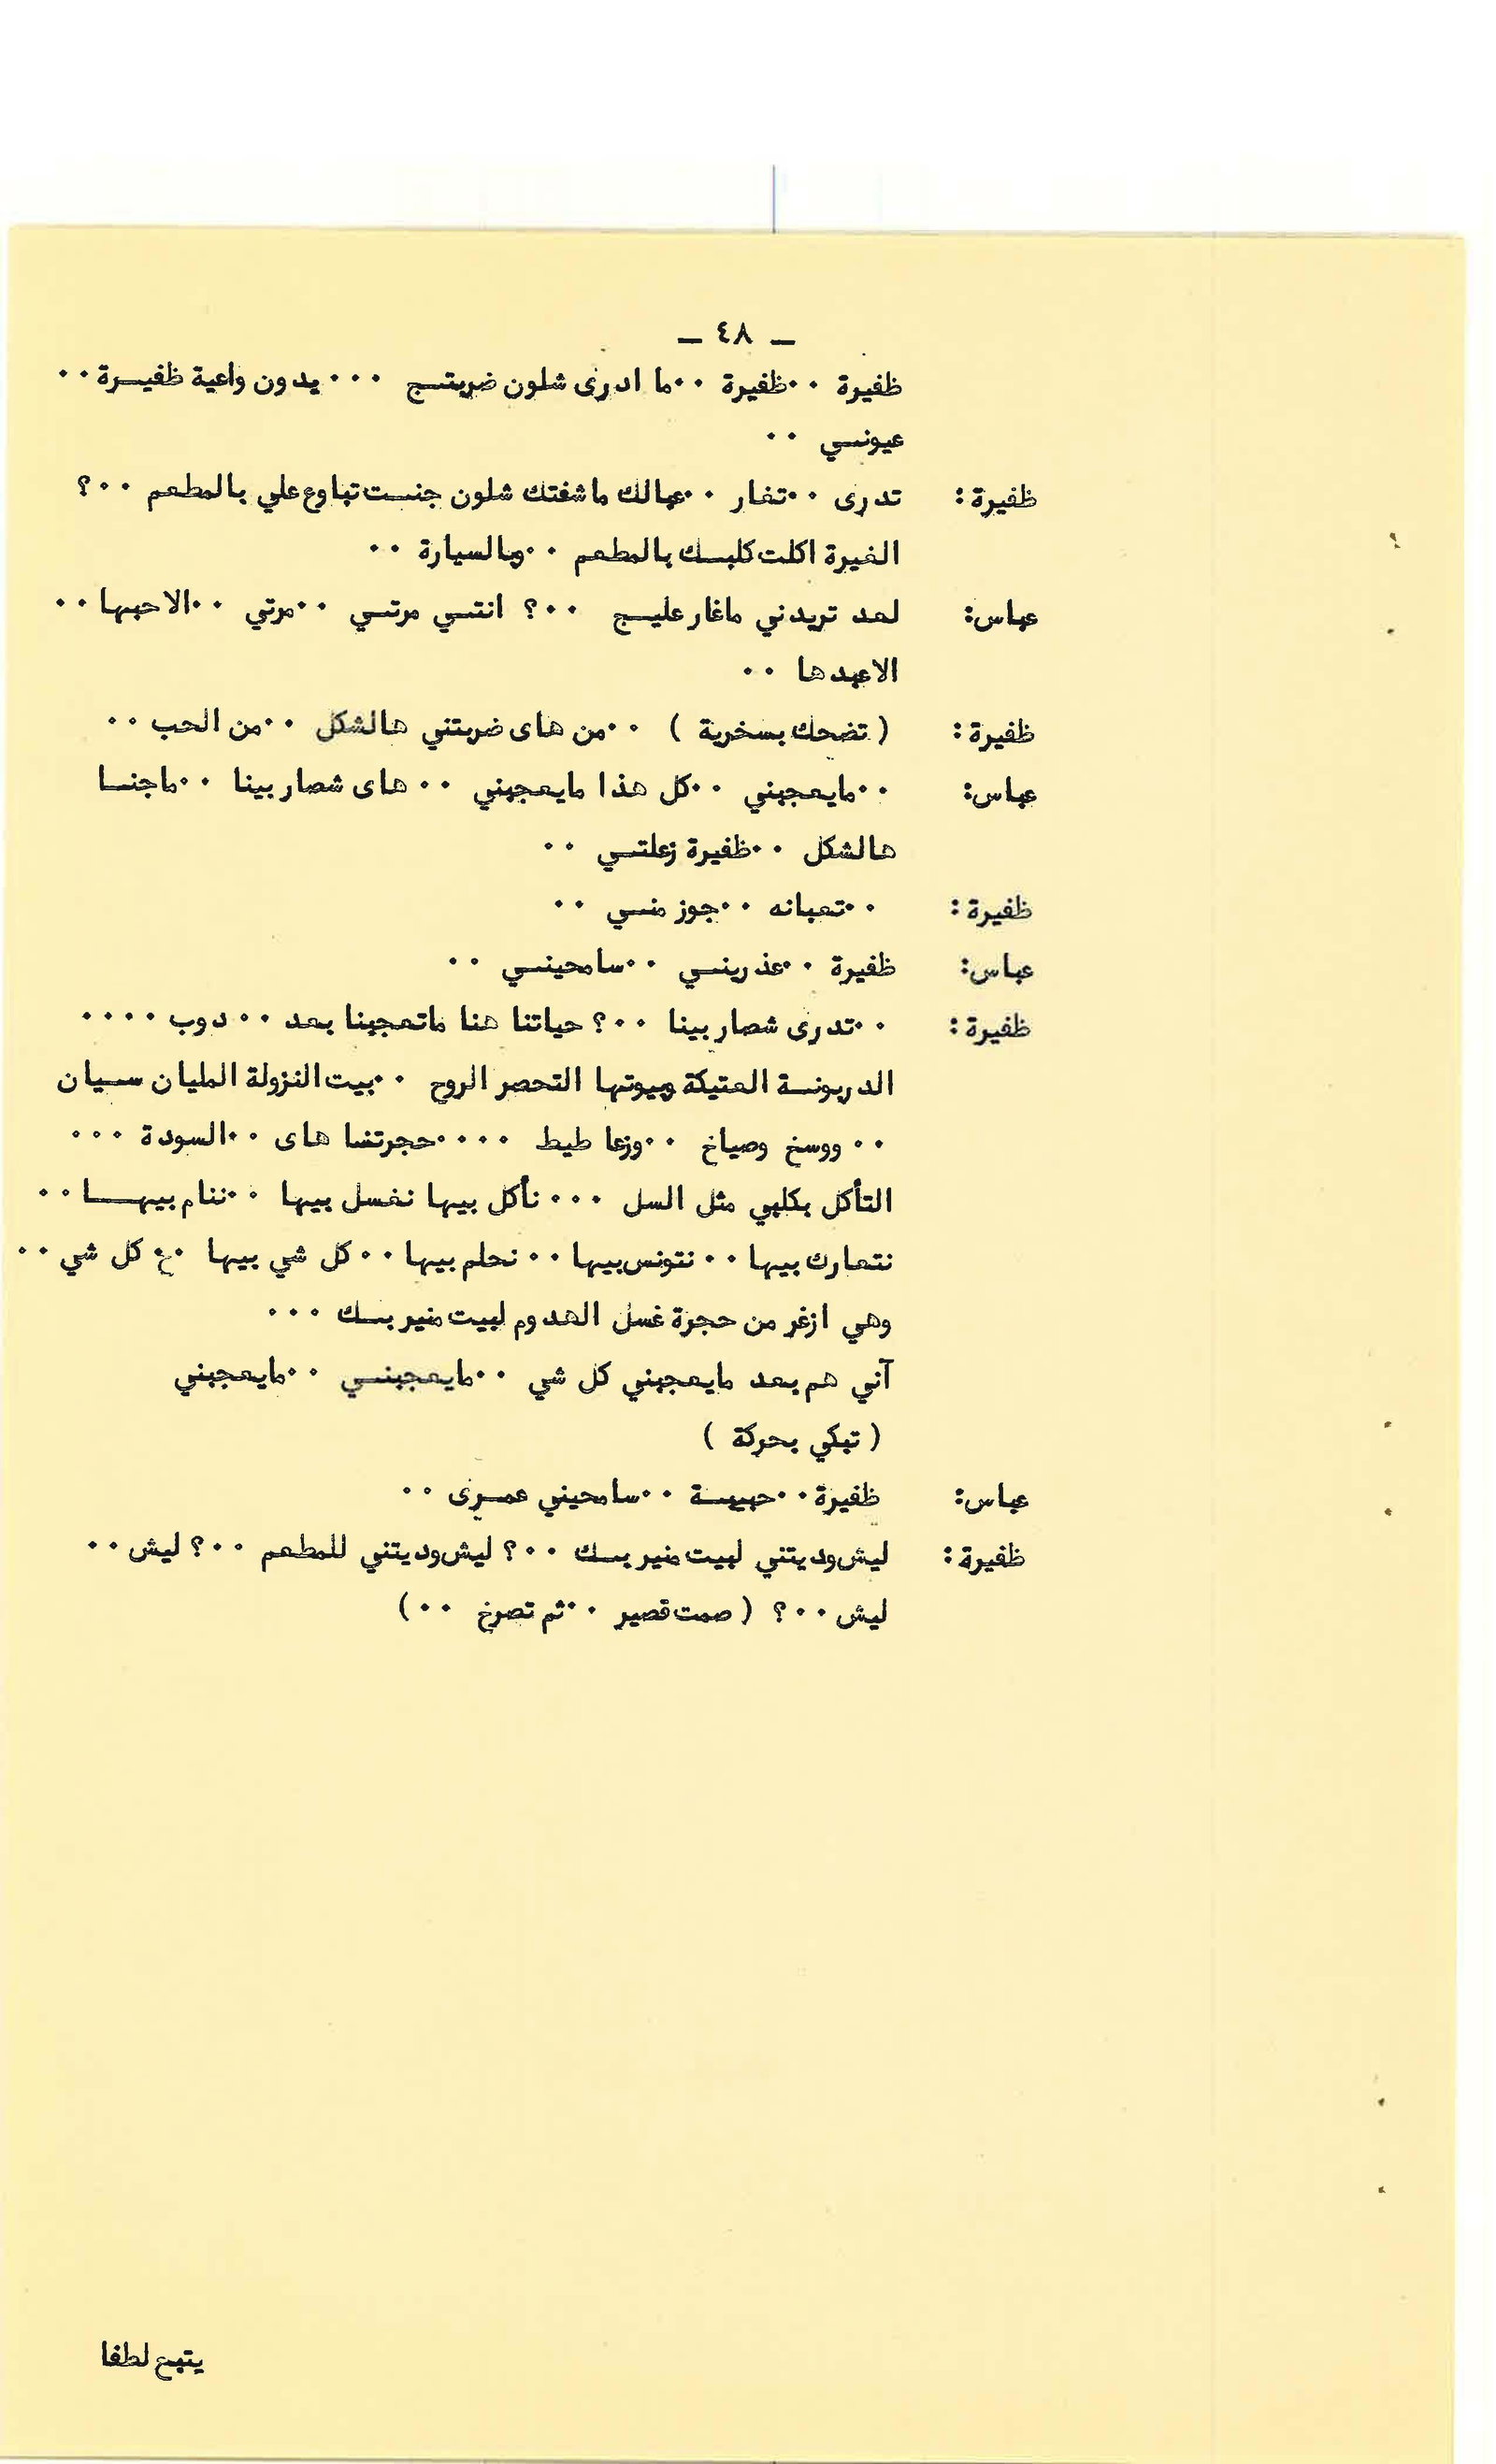 — ٤٨ —
ظفيرة ٠٠ظفيرة ٠٠ما ادرى شلون ضربتـج ٠٠٠يدون واعية ظفيـرة٠٠
عيونـي ٠٠
ظفيرة: تدرى ٠٠تغار ٠٠عبالك ماشفتك شلون جنـت تباوع علي بالمطعم ٠٠؟
الغيرة اكلت كلبـك بالمطعم ٠٠وبالسيارة ٠٠
عباس: لعد تريدني ماغار عليـج ٠٠؟ انتـي مرتـي ٠٠مرتي ٠٠الاحبها٠٠
الاعبدها ٠٠
ظفيرة: ( تضحك بسخرية ) ٠٠من هاى ضربتني هالشكل ٠٠من الحب ٠٠
عباس: ٠٠مايعجبني ٠٠كل هذا مايعجبني ٠٠هاى شصار بينا ٠٠ماجنـا
هالشكل ٠٠ظفيرة زعلتـي ٠٠
ظفيرة: ٠٠تعبانه ٠٠جوز منـي ٠٠
عباس: ظفيرة ٠٠عذرينـي ٠٠سامحينـي ٠٠
ظفيرة: ٠٠تدرى شصار بينا ٠٠؟ حياتنا هنا ماتعجبنا بعد ٠٠دوب ٠٠٠٠
الدربونـة العتيكة وبيوتها التحصر الروح ٠٠بيت النزولة المليان سـيان
٠٠ووسخ وصياخ ٠٠وزعا طيط ٠٠٠٠حجرتنا هاى ٠٠السودة ٠٠٠
التأكل بكلبي مثل السل ٠٠٠نأكل بيها نغسل بيها ٠٠ننام بيهـا٠٠
نتعارك بيها ٠٠نتونس بيها ٠٠نحلم بيها ٠٠كل شي بيها ٠٠ كل شي ٠٠
وهي ازغر من حجرة غسل الهدوم لبيت منير بـك ٠٠٠
آني هم بعد مايعجبني كل شي ٠٠مايعجبنـي ٠٠مايعجبني
( تبكي بحركة )
عباس: ظفيرة٠٠حبيبـة ٠٠سامحيني عمـرى ٠٠
ظفيرة: ليش وديتني لبيت منير بـك ٠٠؟ ليش وديتني للمطعم ٠٠؟ ليش ٠٠
ليش ٠٠؟ ( صمت قصير ٠٠ثم تصرخ ٠٠)
يتبع لطفا